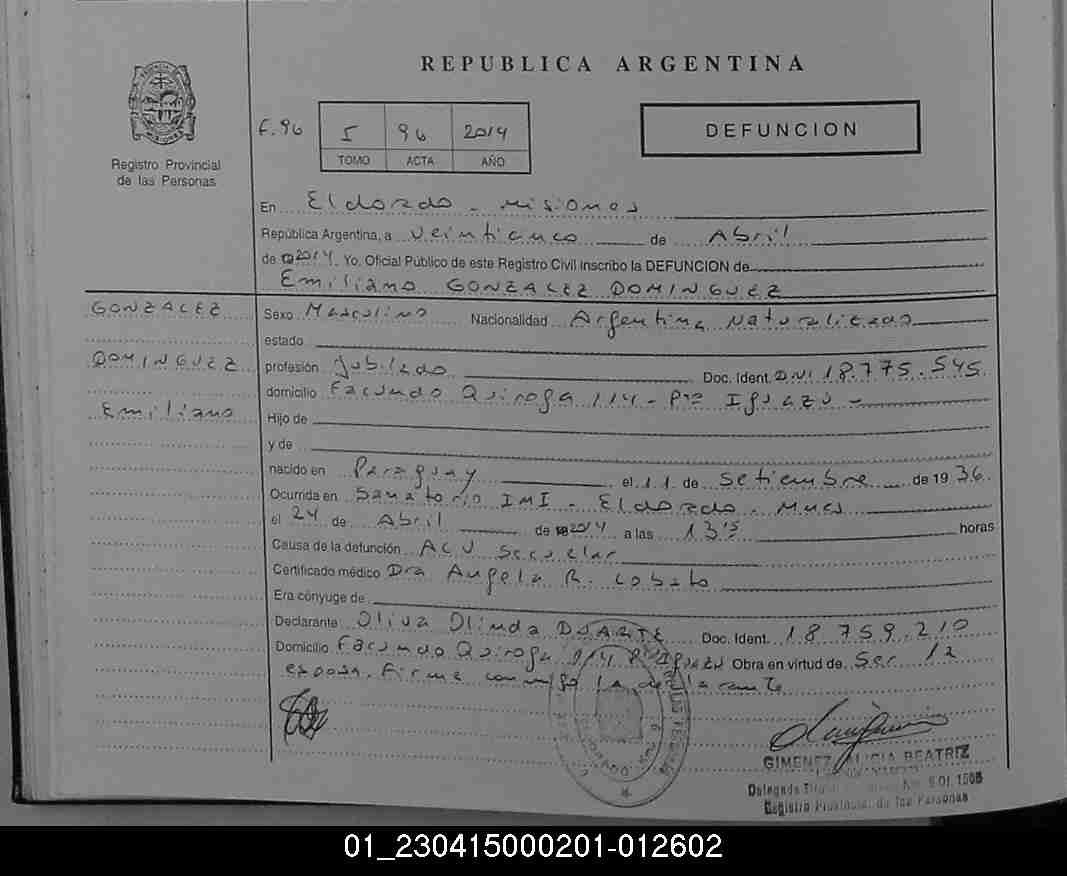 REPUBLICA ARGENTINA
Registro Provincial
de las Personas
F.96
5 96 2014
TOMO ACTA AÑO
DEFUNCION
En Eldorado - Misiones
República Argentina, a veinticinco de Abril
de 2014. Yo. Oficial Público de este Registro Civil inscribo la DEFUNCION de
Emiliano GONZALEZ DOMINGUEZ
GONZALEZ
DOMINGUEZ
Emiliano
Sexo Masculino Nacionalidad Argentina Naturalizado
estado
profesión Jubilado Doc. Ident. D.N.I 18.775.545
domicilio Facundo Quiroga 114 - Pto Iguazu -
Hijo de
y de
nacido en Paraguay el 11 de Setiembre de 1936.
Ocurrida en Sanatorio IMI - Eldorado - Mnes
el 24 de Abril de 2014 a las 13 15 horas
Causa de la defunción ACV Secuelar
Certificado médico Dra Angela R. Lobato
Era cónyuge de
Declarante Oliva Olinda DUARTE Doc. Ident. 18 759.210
Domicilio Facundo Quiroga 114 Pto Iguazu Obra en virtud de Ser la
esposa. Firma conmigo la declarante
GIMENEZ ALICIA BEATRIZ
Delegada
Registro Provincial de las Personas
01_230415000201-012602